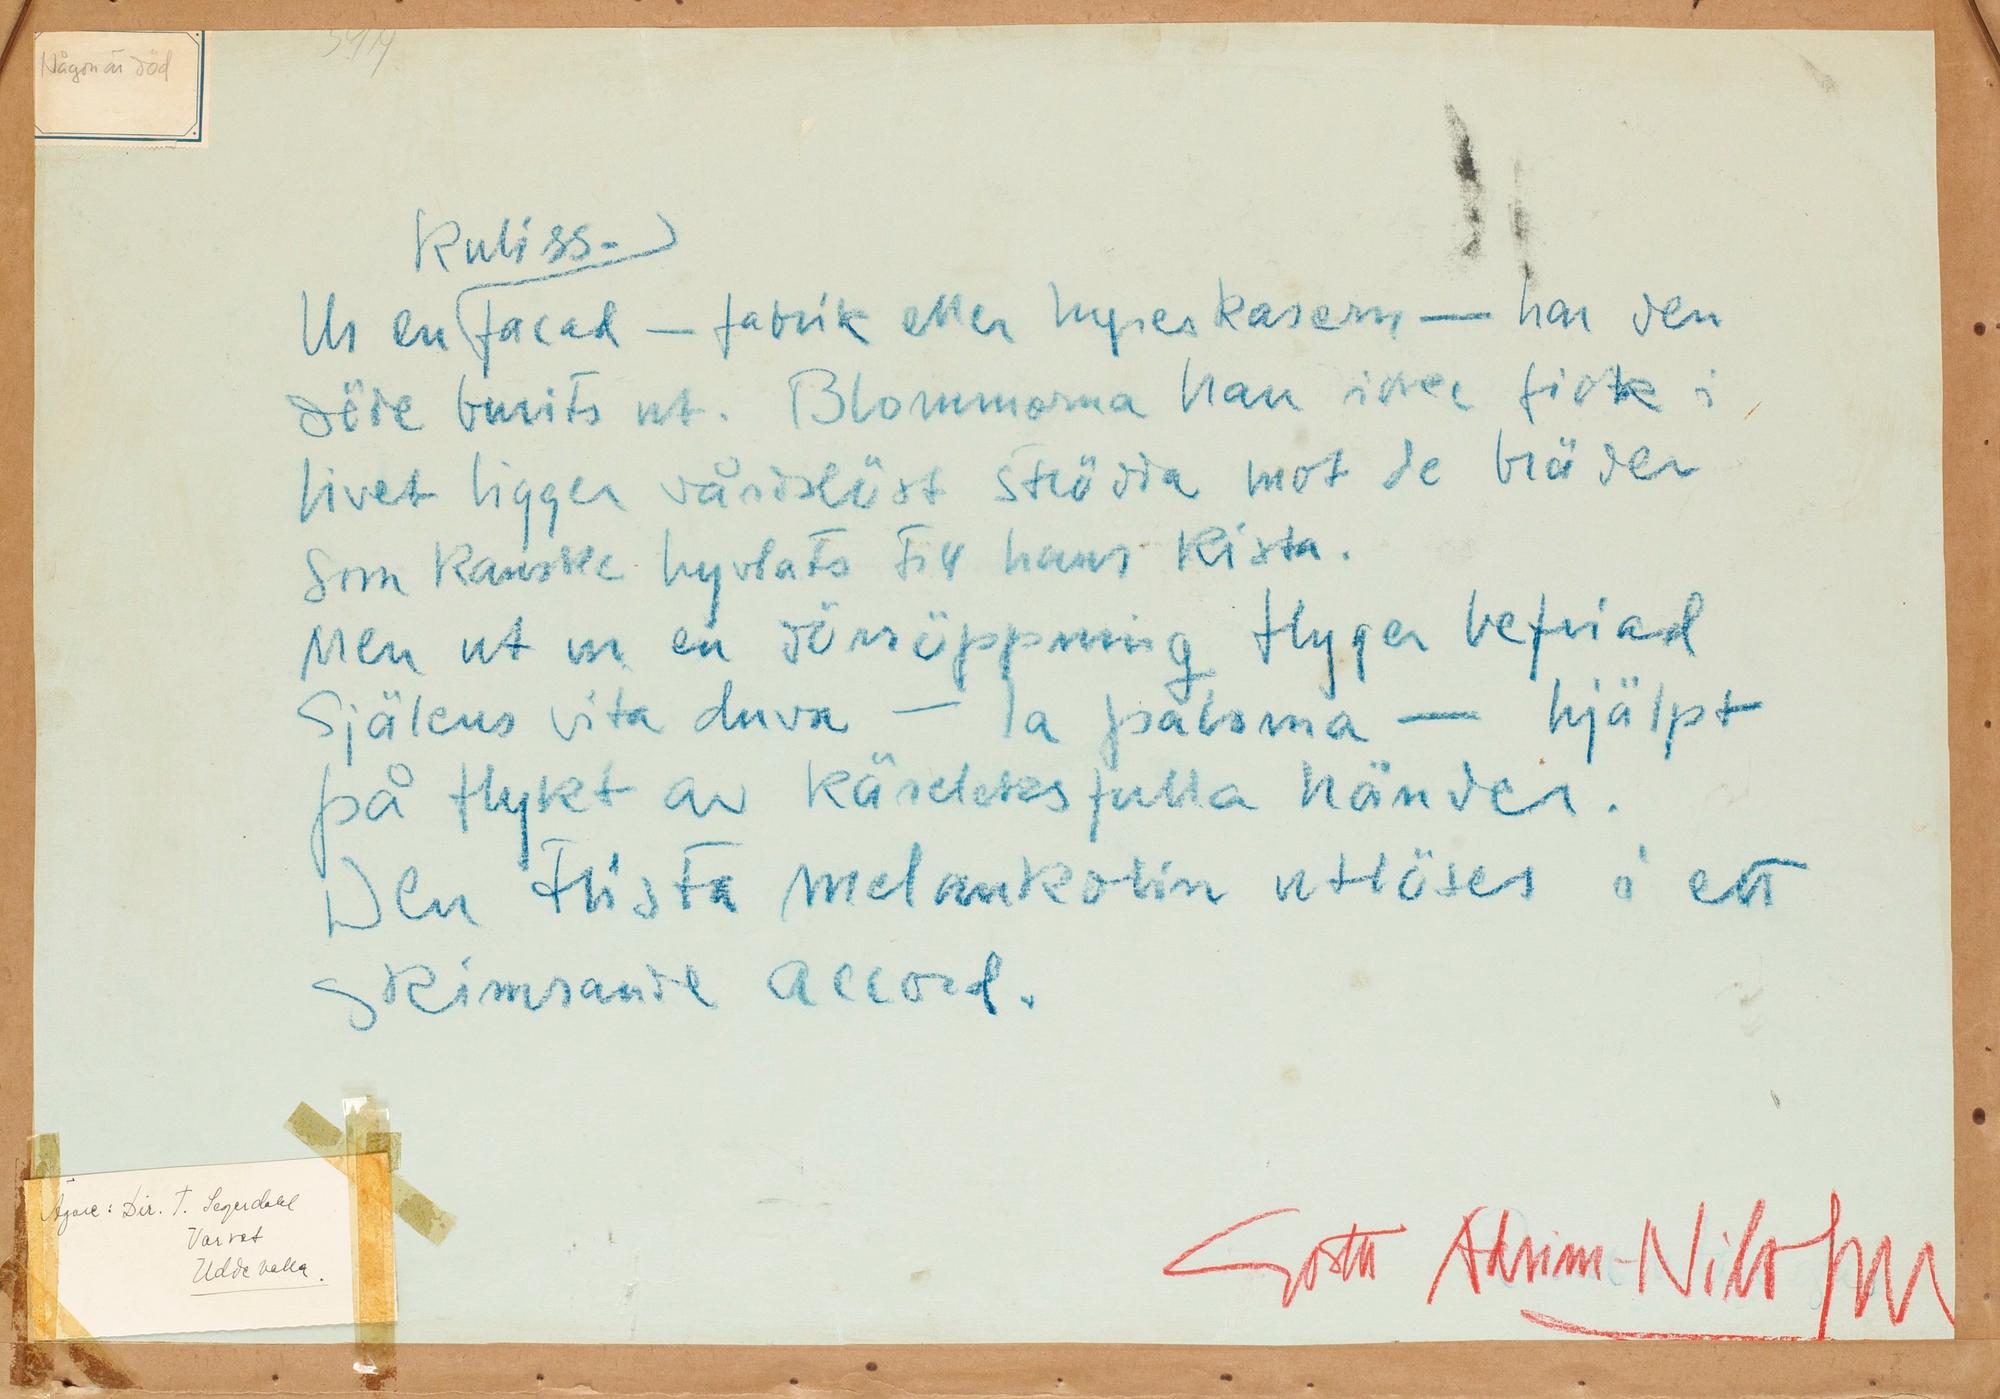 Någon är död
Kuliss-
Ur en facad — fabrik eller hyreskasern — har den
döde burits ut. Blommorna han icke fick i
livet ligger vårdslöst strödda mot de bräder
som kanske hyvlats till hans kista.
Men ut ur en dörröppning flyger befriad
Själens vita duva — la paloma — hjälpt
på flykt av kärleksfulla händer.
Den trista melankolin utlöses i ett
skimrande accord.
Ägare: Dir. T. Segerdahl
Varvet
Uddevalla.
Gösta Adrian-Nilsson